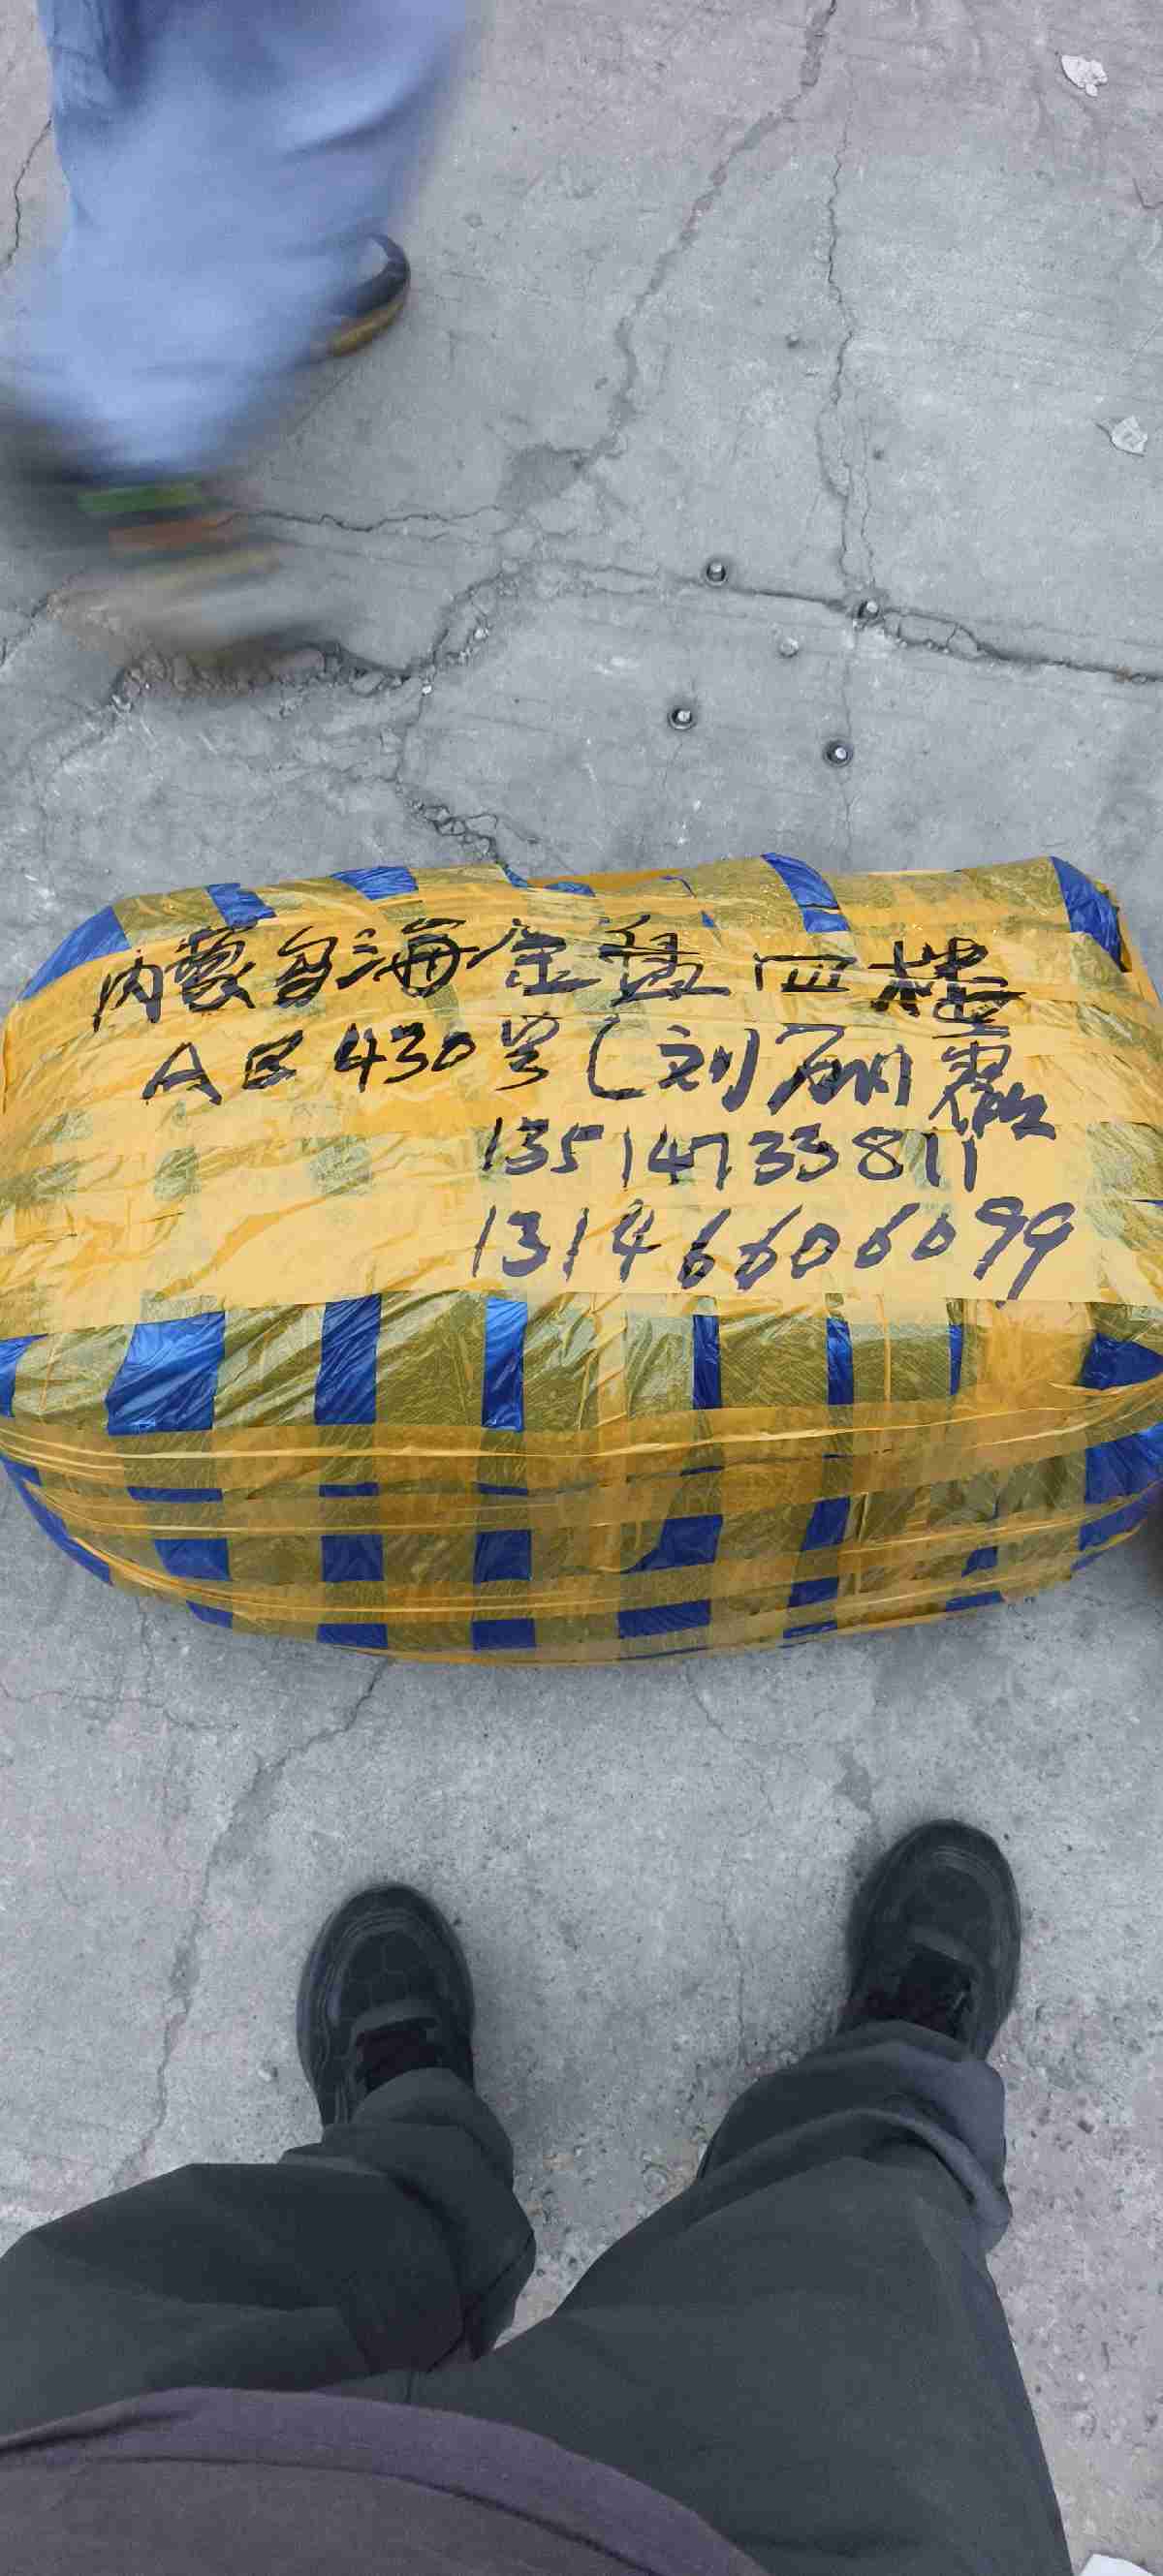 内蒙乌海金盘四楼
A区430号(刘丽霞
13514733811
13146606099